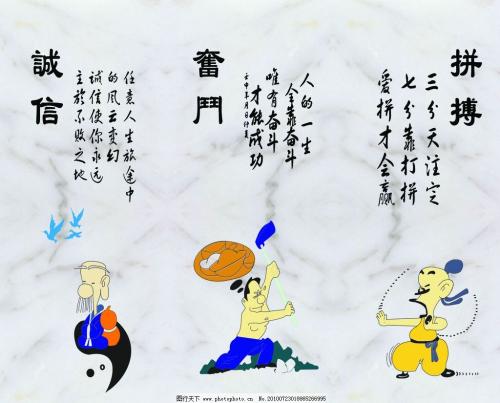 拼搏
三分天注定
七分靠打拼
爱拼才会赢
奮鬥
人的一生
全靠奋斗
唯有奋斗
才能成功
誠信
任意人生旅途中
的风云变幻
诚信使你永远
立於不败之地
图行天下 www.photophoto.cn No.20100723018985266995